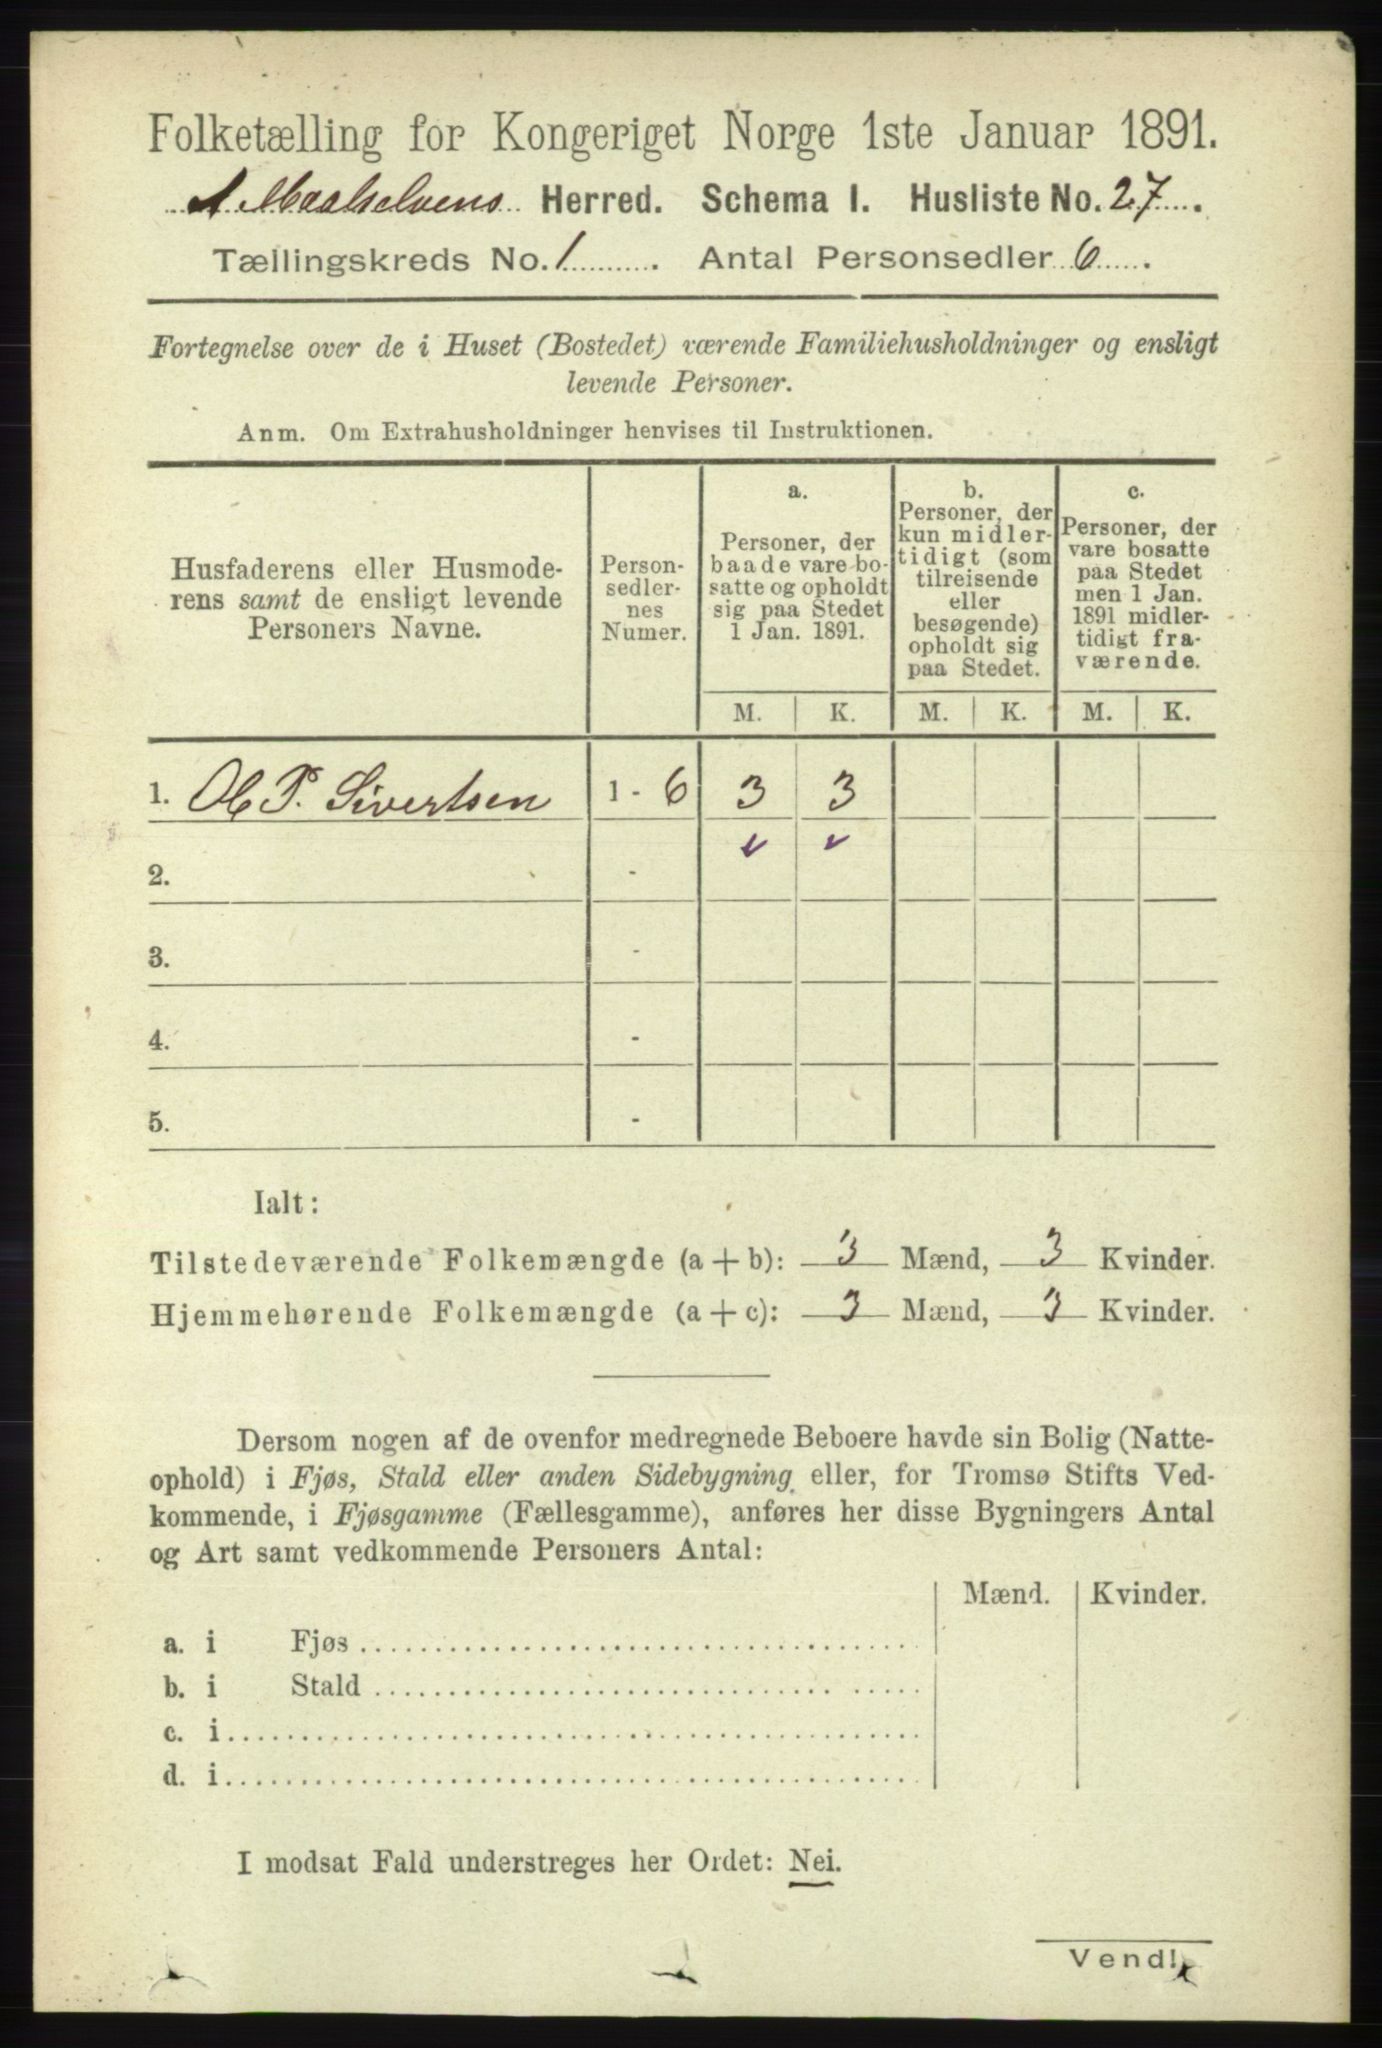 Folketælling for Kongeriget Norge 1ste Januar 1891.
Maalselvens Herred. Schema I. Husliste No. 27.
Tællingskreds No. 1. Antal Personsedler 6.
Fortegnelse over de i Huset (Bostedet) værende Familiehusholdninger og ensligt
levende Personer.
Anm. Om Extrahusholdninger henvises til Instruktionen.
Husfaderens eller Husmode-
rens samt de ensligt levende
Personers Navne.
Person-
sedler-
nes
Numer.
a.
Personer, der
baade vare bo-
satte og opholdt
sig paa Stedet
1 Jan. 1891.
b.
Personer, der
kun midler-
tidigt (som
tilreisende
eller
besøgende)
opholdt sig
paa Stedet.
c.
Personer, der
vare bosatte
paa Stedet
men 1 Jan.
1891 midler-
tidigt fra-
værende.
M. K. M. K. M. K.
1. Ol P. Sivertsen 1 - 6 3 3
2. -
3. -
4. -
5. -
Ialt:
Tilstedeværende Folkemængde (a + b): 3 Mænd, 3 Kvinder.
Hjemmehørende Folkemængde (a + c): 3 Mænd, 3 Kvinder.
Dersom nogen af de ovenfor medregnede Beboere havde sin Bolig (Natte-
ophold) i Fjøs, Stald eller anden Sidebygning eller, for Tromsø Stifts Ved-
kommende, i Fjøsgamme (Fællesgamme), anføres her disse Bygningers Antal
og Art samt vedkommende Personers Antal:
Mænd. Kvinder.
a. i Fjøs
b. i Stald
c. i
d. i
I modsat Fald understreges her Ordet: Nei.
Vend!